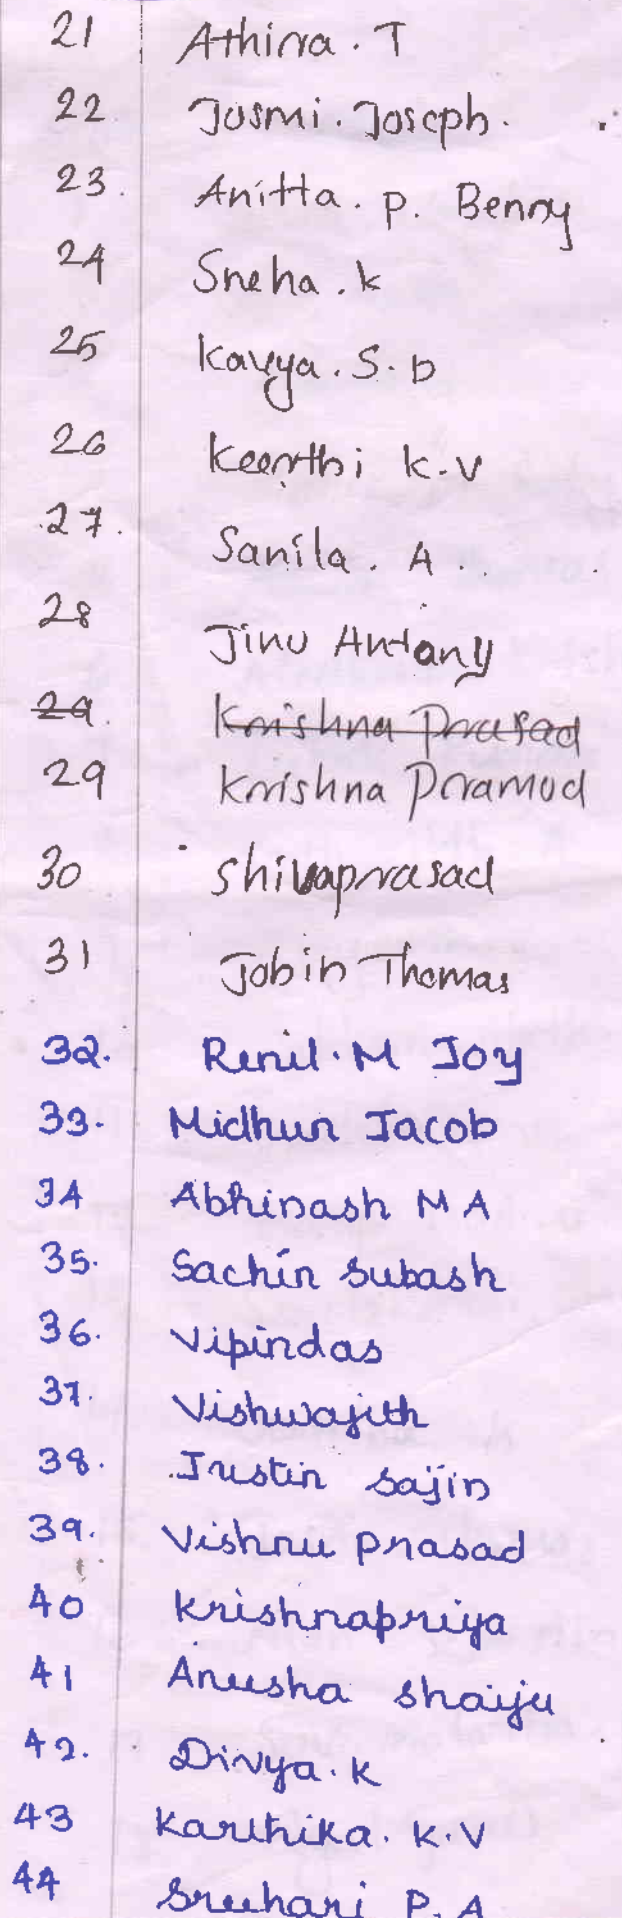 21 Athira . T
22 Josmi . Joseph .
23. Anitta . P. Benny
24 Sneha . k
25 Kavya . S . D
26 Keerthi K.V
27. Sanila . A .
28 Jinu Antany
29. Krishna Prasad
29 Krishna Pramod
30 Shivaprasad
31 Jobin Thomas
32. Renil . M Joy
33. Midhun Jacob
34 Abhinash M A
35. Sachin Subash
36. Vipindas
37. Vishwajith
38. Justin Sajin
39. Vishnu Prasad
40 Krishnapriya
41 Anusha Shaiju
42. Divya . K
43 Karthika . K . V
44 Sreehari P. A